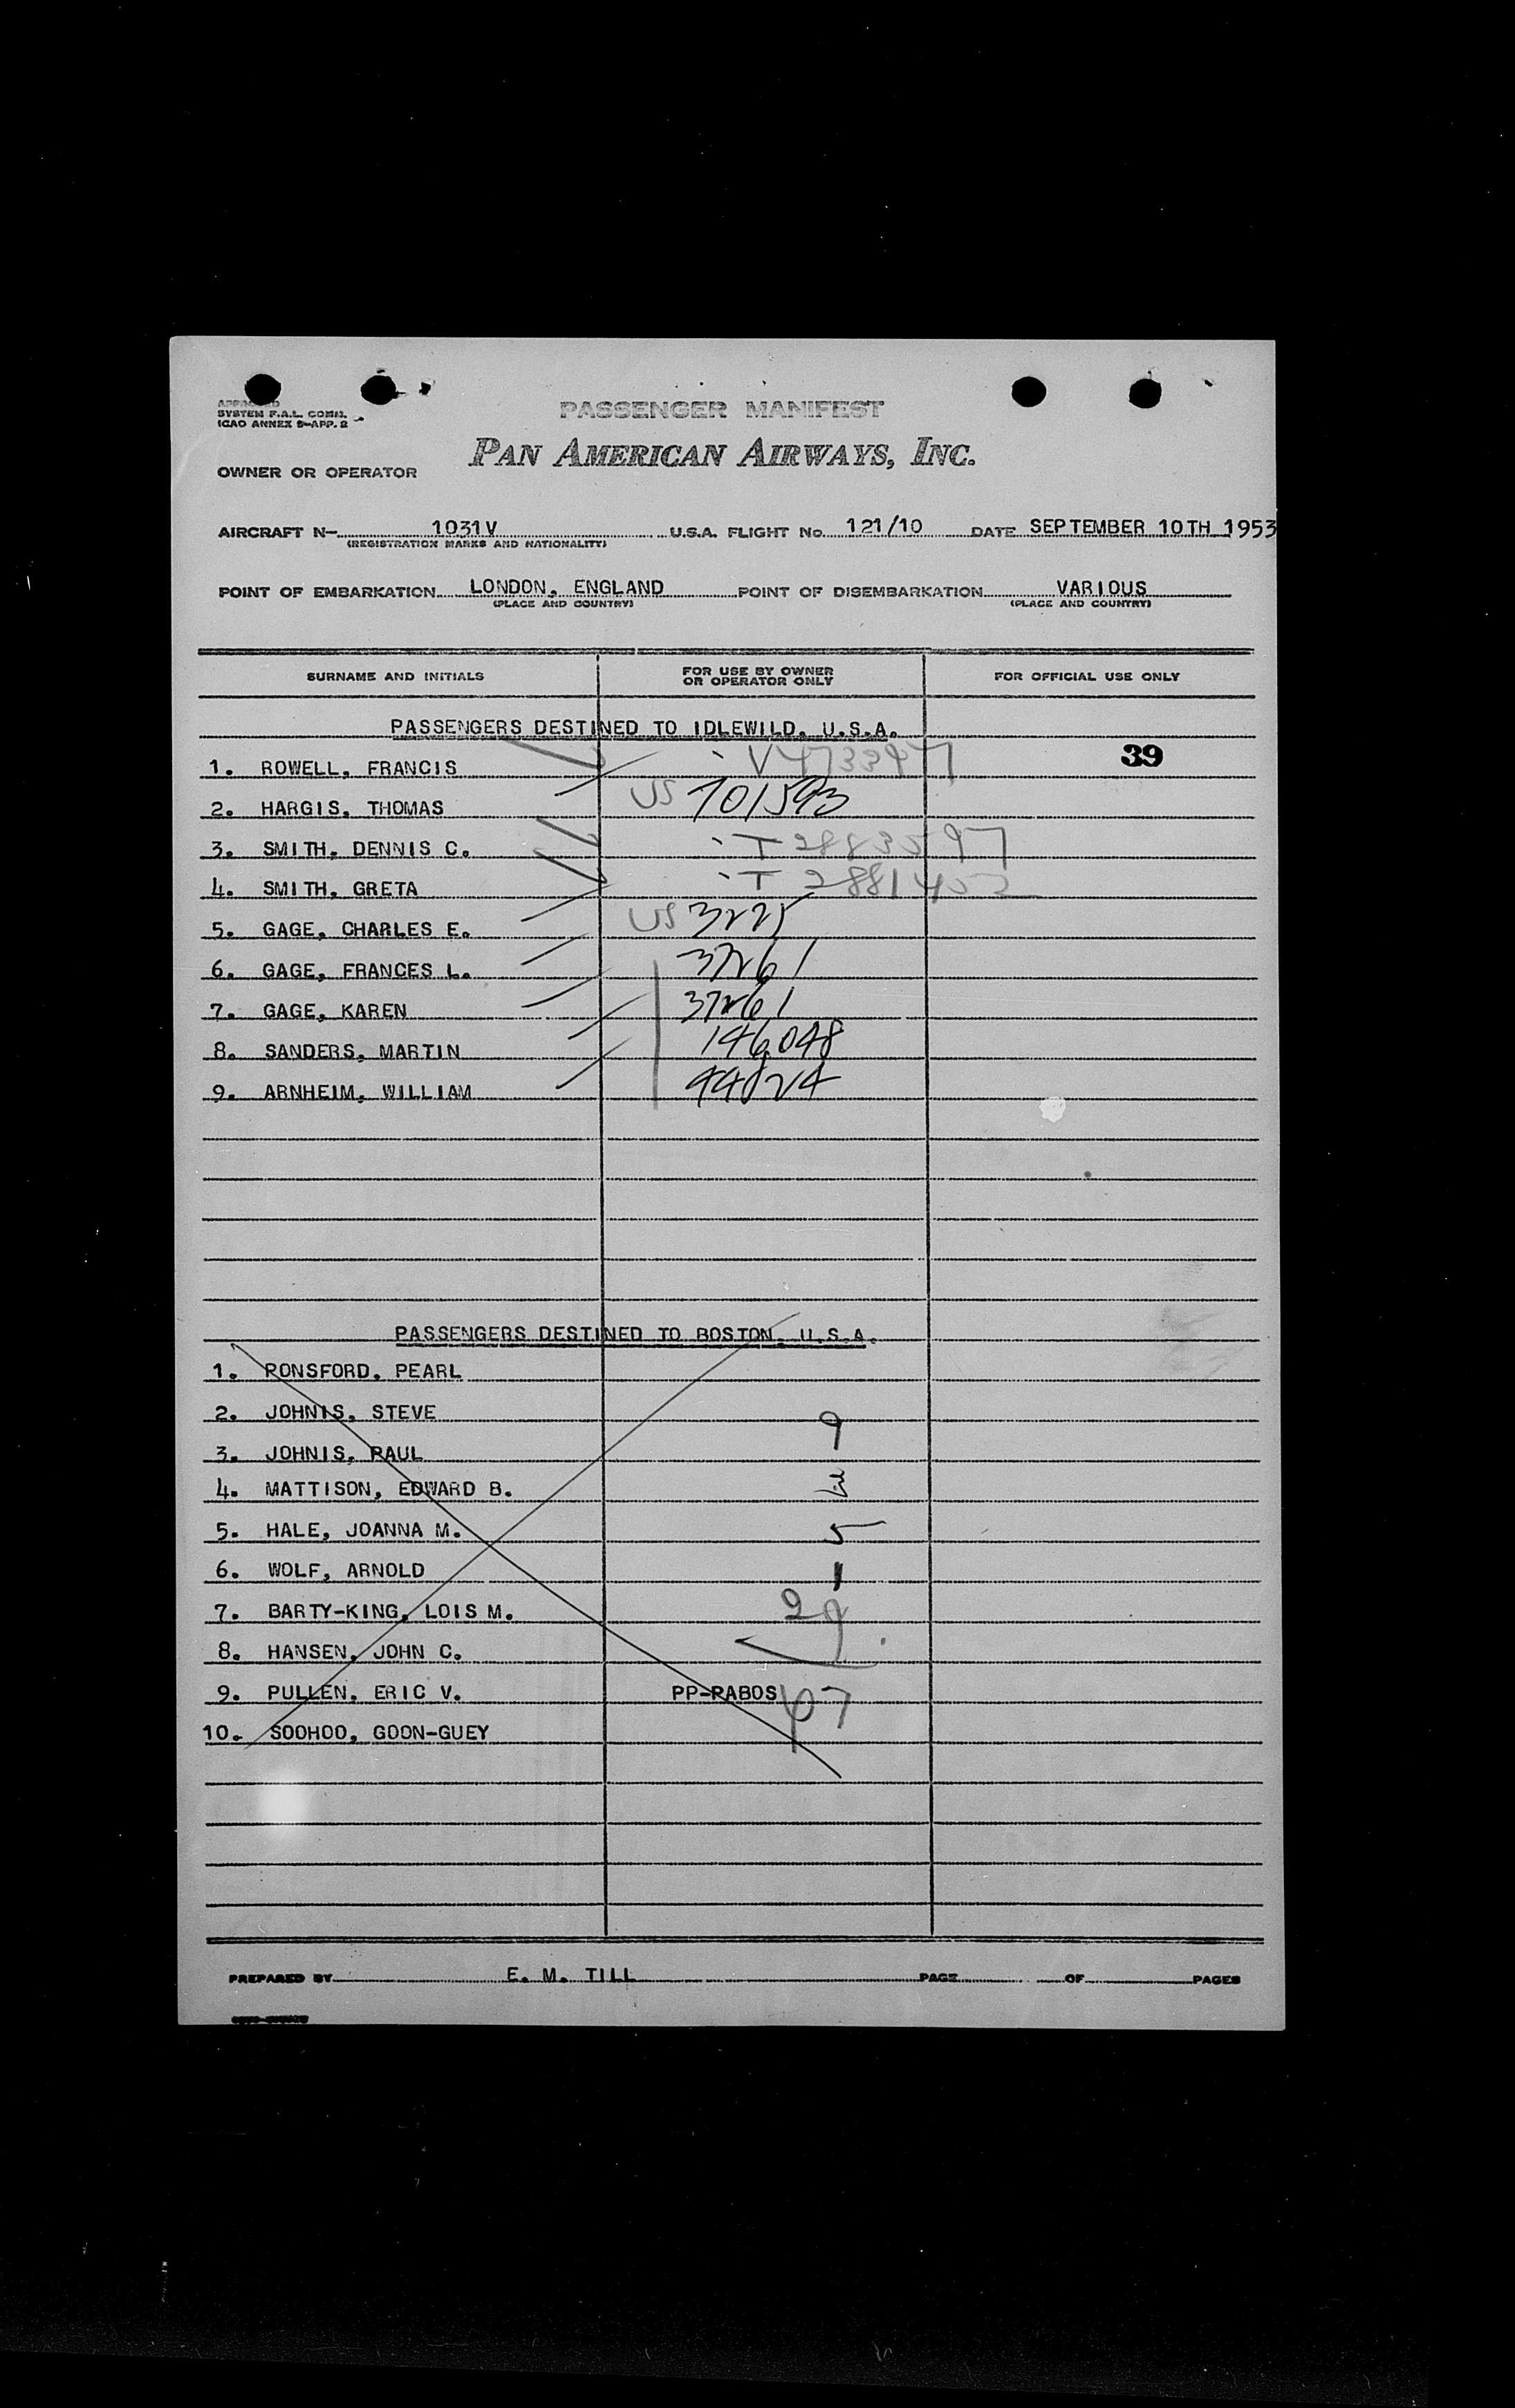 APPROVED
SYSTEM F.A.L. COMM.
ICAO ANNEX 9-APP. 2
PASSENGER MANIFEST
PAN AMERICAN AIRWAYS, INC.
OWNER OR OPERATOR
AIRCRAFT N- 1031V U.S.A. FLIGHT No. 121/10 DATE SEPTEMBER 10TH 1953
(REGISTRATION MARKS AND NATIONALITY)
POINT OF EMBARKATION LONDON, ENGLAND POINT OF DISEMBARKATION VARIOUS
(PLACE AND COUNTRY) (PLACE AND COUNTRY)
SURNAME AND INITIALS FOR USE BY OWNER OR OPERATOR ONLY FOR OFFICIAL USE ONLY
PASSENGERS DESTINED TO IDLEWILD, U.S.A.
1. ROWELL, FRANCIS 39
2. HARGIS, THOMAS US 701593
3. SMITH, DENNIS C.
4. SMITH, GRETA
5. GAGE, CHARLES E. US
6. GAGE, FRANCES L. 37261
7. GAGE, KAREN 37261
8. SANDERS, MARTIN 146048
9. ARNHEIM, WILLIAM
PASSENGERS DESTINED TO BOSTON, U.S.A.
1. RONSFORD, PEARL
2. JOHNIS, STEVE 9
3. JOHNIS, PAUL
4. MATTISON, EDWARD B.
5. HALE, JOANNA M. 5
6. WOLF, ARNOLD 1
7. BARTY-KING, LOIS M.
8. HANSEN, JOHN C.
9. PULLEN, ERIC V. PP-RABOS
10. SOOHOO, GOON-GUEY
PREPARED BY E. M. TILL PAGE OF PAGES